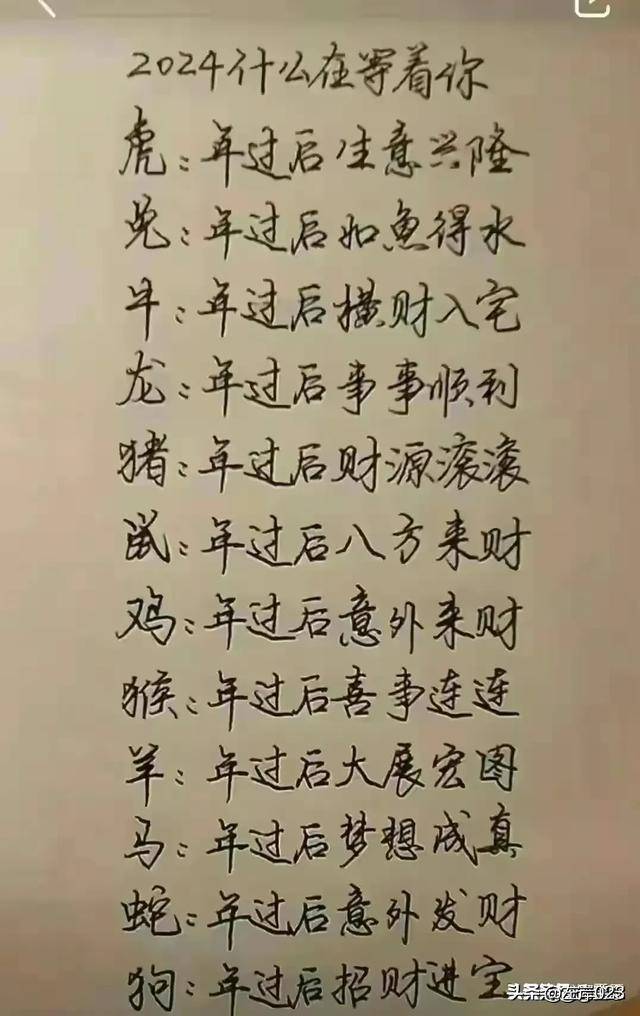 2024什么在等着你
虎：年过后生意兴隆
兔：年过后如魚得水
牛：年过后横财入宅
龙：年过后事事顺利
猪：年过后财源滚滚
鼠：年过后八方来财
鸡：年过后意外来财
猴：年过后喜事连连
羊：年过后大展宏图
马：年过后梦想成真
蛇：年过后意外发财
狗：年过后招财进宝
头条
023